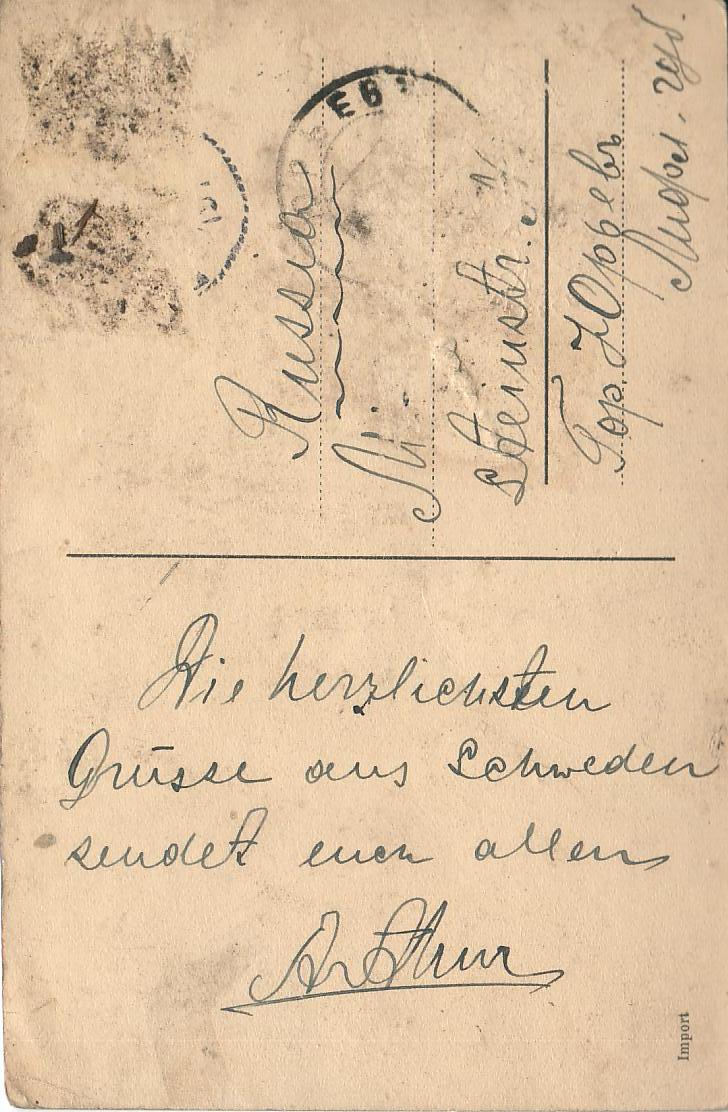 Russia
Steinstr.
Гор. Юрьевъ
Лифл. губ.
Die herzlichsten
Grüsse aus Schweden
sendet euch allen
Arthur
Import